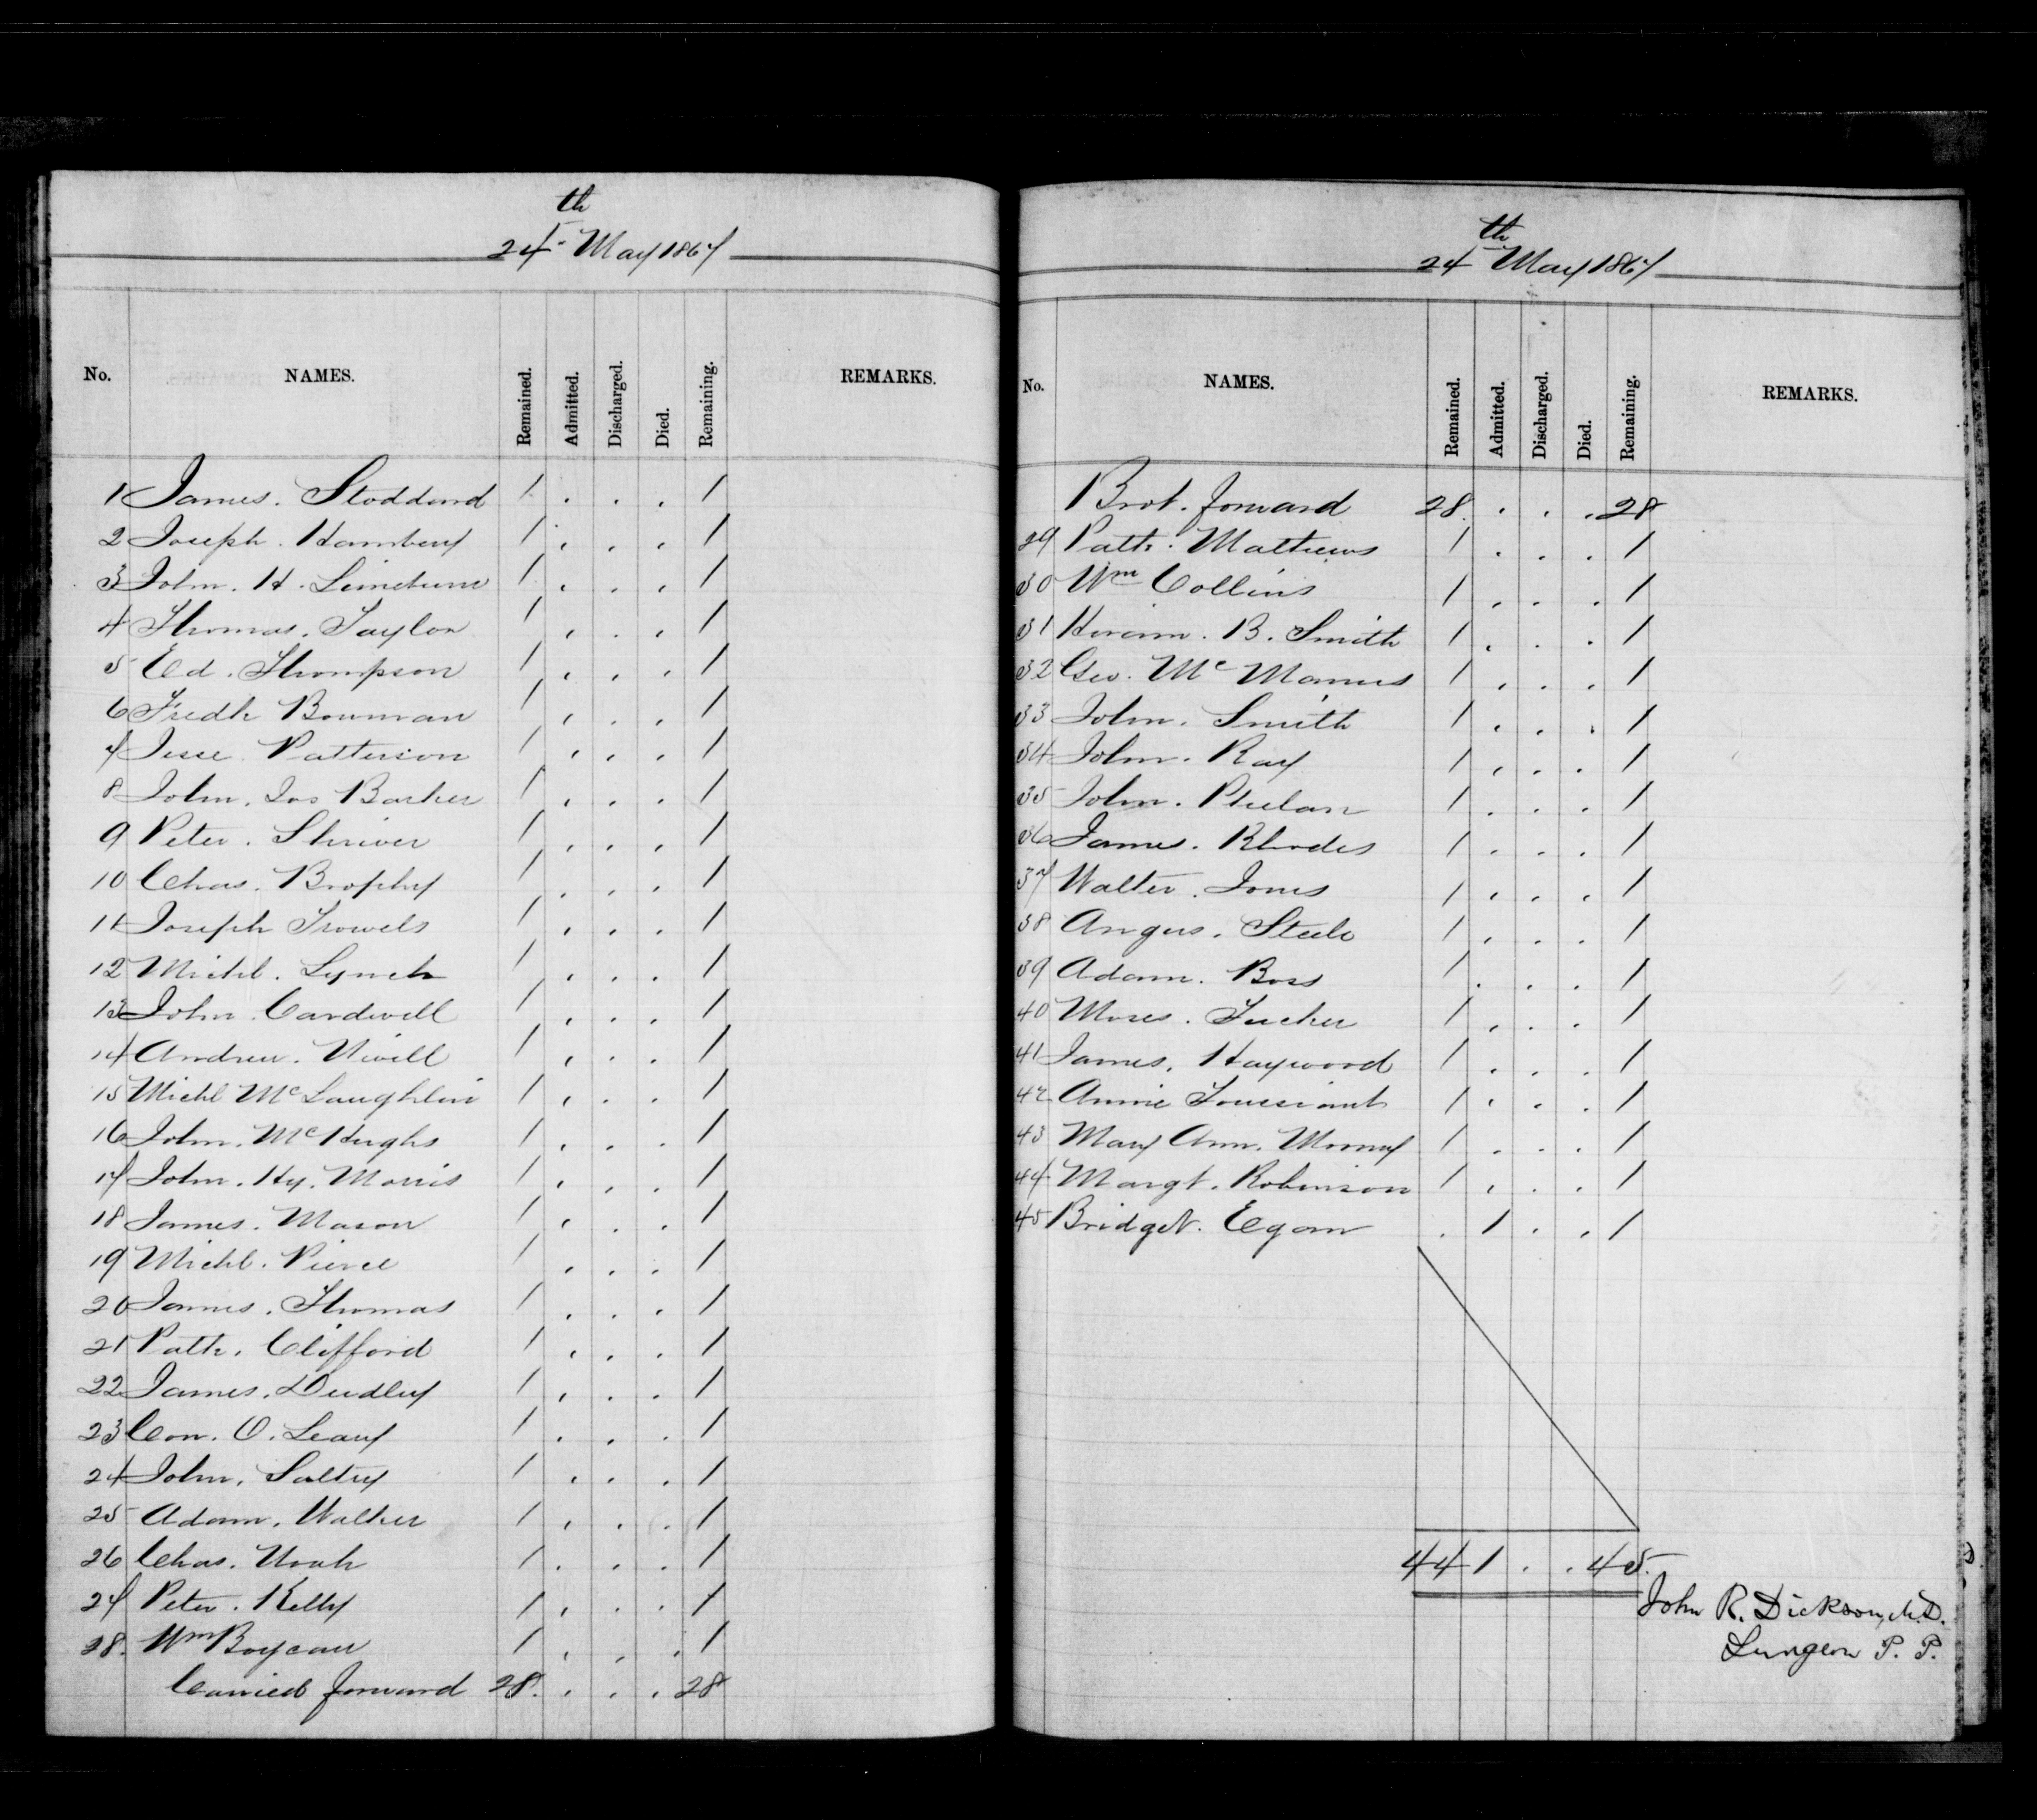 24th May 1867
No. NAMES. Remained. Admitted. Discharged. Died. Remaining. REMARKS.
1 James. Stoddard 1 . . . 1
2 Joseph. Hambery 1 . . . 1
3 John. H. 1 . . . 1
4 Thomas. Taylor 1 . . . 1
5 Ed. Thompson 1 . . . 1
6 Fredk Bowman 1 . . . 1
7 Jesse. Patterson 1 . . . 1
8 John. Jos Barker 1 . . . 1
9 Peter. Shriver 1 . . . 1
10 Chas. Brophy 1 . . . 1
11 Joseph Trowels 1 . . . 1
12 Michl. Lynch 1 . . . 1
13 John. Cardwell 1 . . . 1
14 Andrew. Nivell 1 . . . 1
15 Michl McLaughlin 1 . . . 1
16 John. McHughs 1 . . . 1
17 John. Hy. Morris 1 . . . 1
18 James. Mason 1 . . . 1
19 Michl. Pierce 1 . . . 1
20 James. Thomas 1 . . . 1
21 Patk. Clifford 1 . . . 1
22 James. Dudley 1 . . . 1
23 Con. O. Leary 1 . . . 1
24 John. Saltry 1 . . . 1
25 Adam. Walker 1 . . . 1
26 Chas. Noah 1 . . . 1
27 Peter. Kelly 1 . . . 1
28. Wm Boyeau 1 . . . 1
Carried forward 28. . . . 28
24th May 1867
No. NAMES. Remained. Admitted. Discharged. Died. Remaining. REMARKS.
Brot. forward 28. . . . 28
29 Patk. Mathews 1 . . . 1
30 Wm Collins 1 . . . 1
31 Hiram. B. Smith 1 . . . 1
32 Geo. McManus 1 . . . 1
33 John. Smith 1 . . . 1
34 John. Ray 1 . . . 1
35 John. Phelan 1 . . . 1
36 James. Rhodes 1 . . . 1
37 Walter. Jones 1 . . . 1
38 Angus. Steele 1 . . . 1
39 Adam. Boss 1 . . . 1
40 Moses. Tucker 1 . . . 1
41 James. Haywood 1 . . . 1
42 Annie Toussiant 1 . . . 1
43 Mary Ann. Mooney 1 . . . 1
44 Margt. Robinson 1 . . . 1
45 Bridget. Egan . 1 . . 1
44 1 . . 45.
John R. Dickson, M.D.
Surgeon P. P.